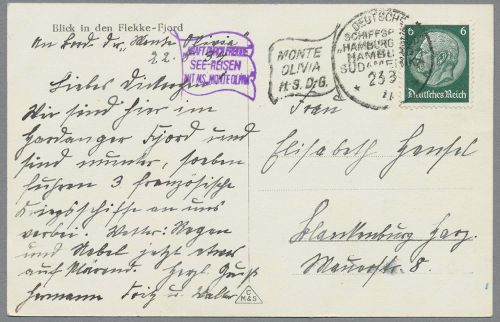 Blick in den Flekke-Fjord
An Bord der „Monte Olivia"
22.
KRAFT DURCH FREUDE
SEE-REISEN
MIT M.S. MONTE OLIVIA
MONTE
OLIVIA
H.S.D.G.
DEUTSCHE
SCHIFFSP
"HAMBURG
HAMBU
SÜDAMER
23 3
6
6
Deutsches Reich
Liebes
Wir sind hier im
Hardanger Fjord und
sind munter, soeben
fuhren 3 französische
Kriegsschiffe an uns
vorbei. Wetter: Regen
und Nebel jetzt etwas
auf klärend. Herzl. Gruß
Hermann Fritz u. Walter
Frau
Elisabeth Hensel
Blankenburg Harz
Mauerstr. 8.
C
M&S